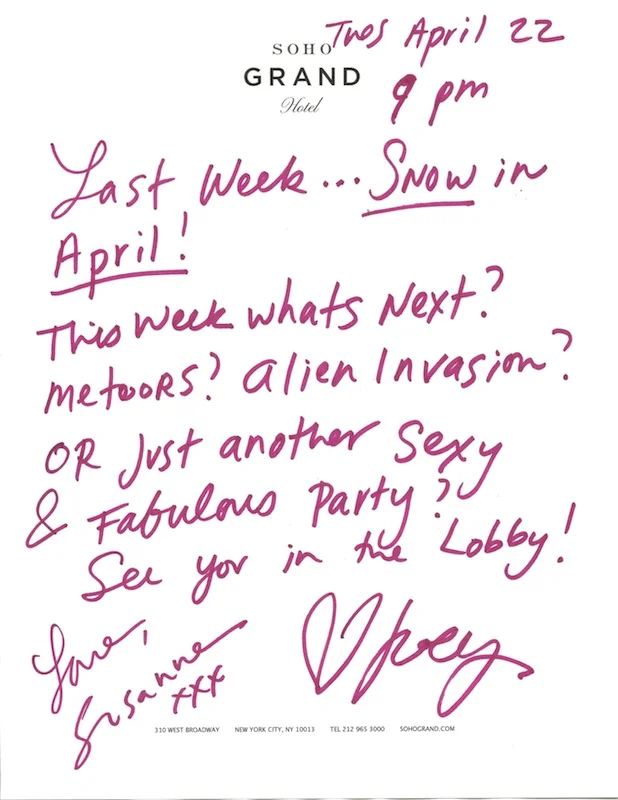 Tues April 22
SOHO
GRAND
Hotel
9 pm
Last Week... Snow in
April!
This Week whats Next?
Meteors? Alien Invasion?
OR Just another Sexy
& Fabulous Party?
See you in the Lobby!
Love,
Susanne
xxx
♡ Joey
310 WEST BROADWAY NEW YORK CITY, NY 10013 TEL 212 965 3000 SOHOGRAND.COM